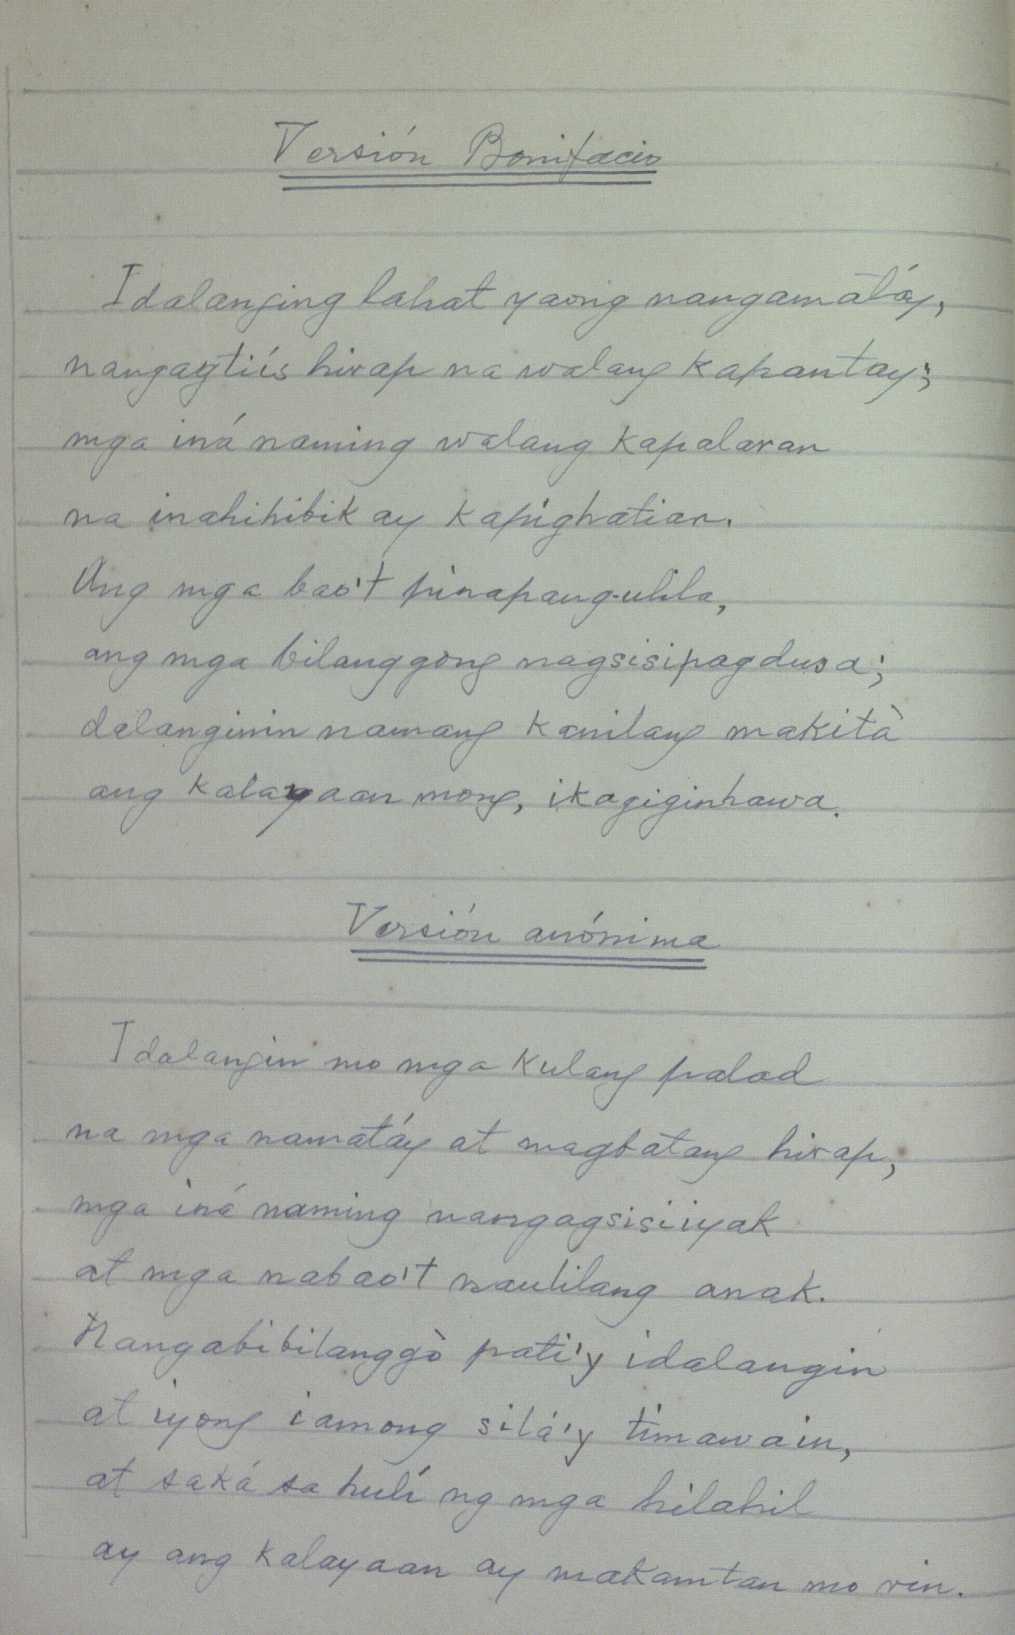 Versión Bonifacio
Idalanging lahat yaong nangamatáy,
nangagtiís hirap na walang kapantay;
mga iná naming walang kapalaran
na inahihibik ay kapighatian.
Ang mga bao't pinapang-ulila,
ang mga bilanggong nagsisipagdusa;
dalanginin namang kanilang makità
ang kalayaan mong, ikagiginhawa.
Versión anónima
Idalangin mo mga kulang palad
na mga namatáy at magbatang hirap,
mga iná naming nangagsisiiyak
at mga nabao't naulilang anak.
Nangabibilanggò pati'y idalangin
at iyong iamong silá'y timawain,
at saká sa hulí ng mga hilahil
ay ang kalayaan ay makamtan mo rin.